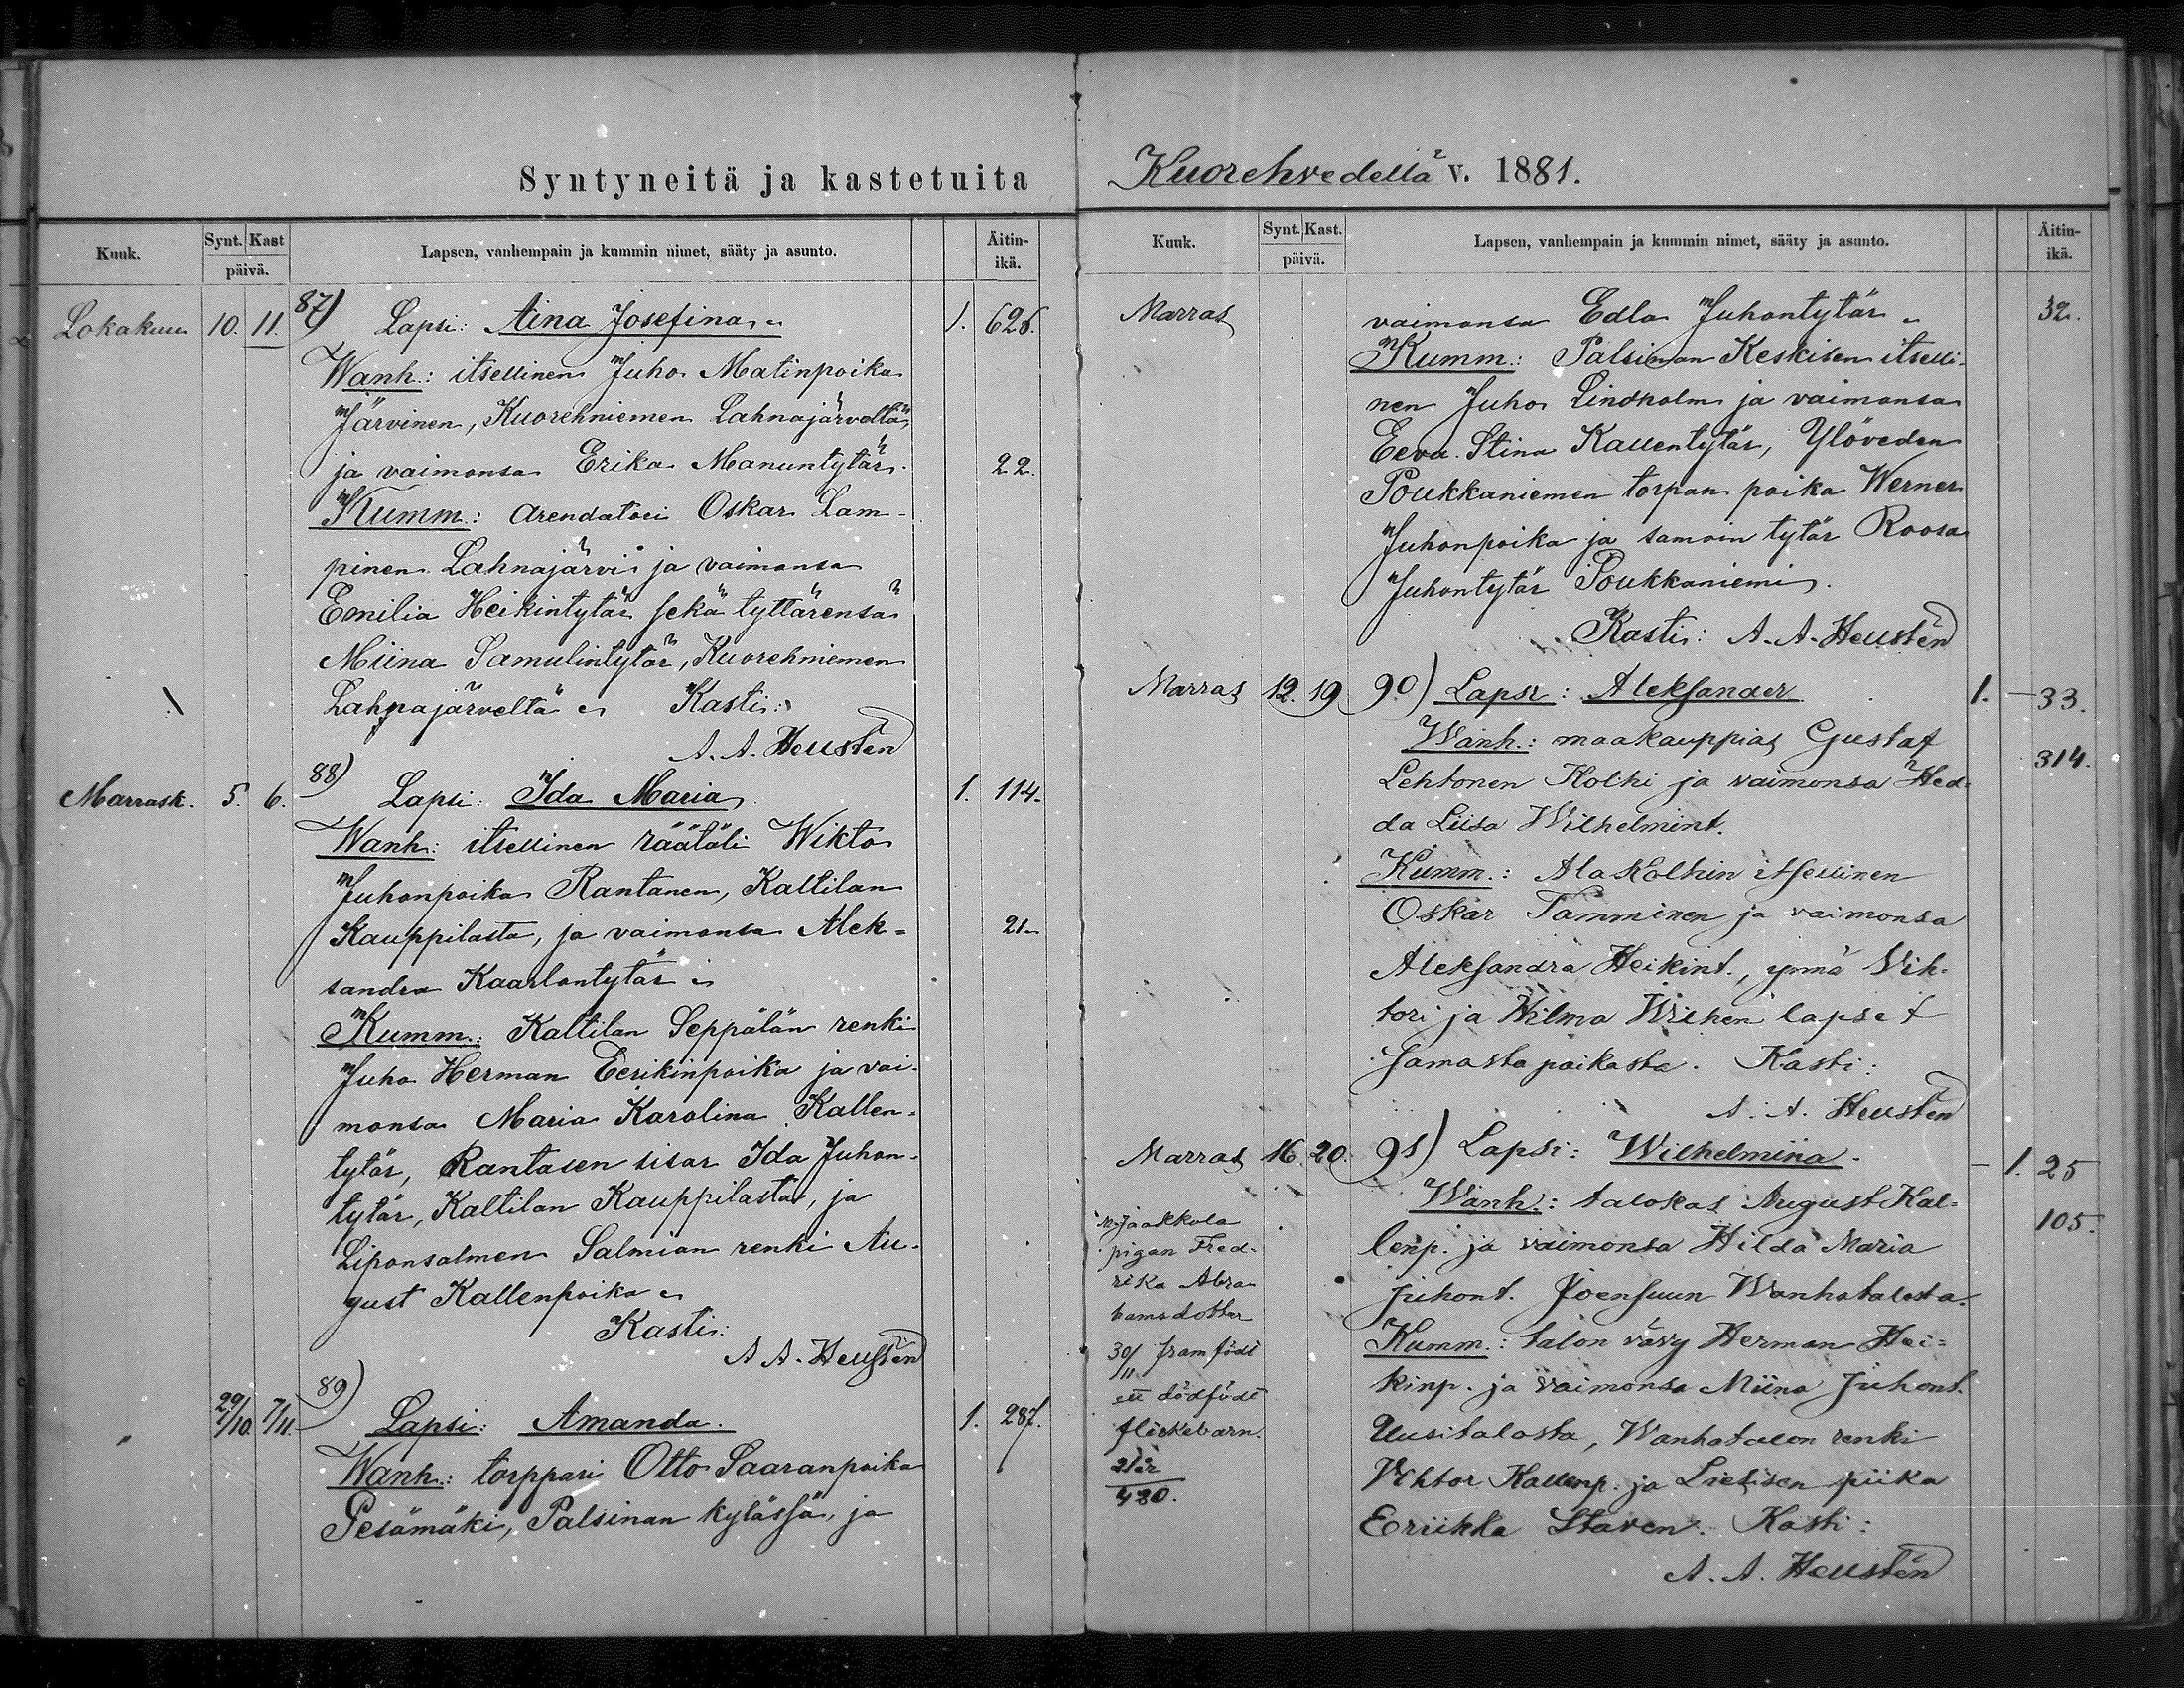 Syntyneitä ja kastetuita
Kuuk.
Synt. Kast
päivä.
Lapsen, vanhempain ja kummin nimet, sääty ja asunto.
Äitin-
ikä.
Lokakuu 10. 11. 87) Lapsi: Aina Josefina 1. 626.
Wanh.: itsellinen Juho Matinpoika
Järvinen, Kuorehniemen Lahnajärveltä,
ja vaimonsa Erika Manuntytär. 22.
Kumm.: Arendatori Oskar Lam-
pinen Lahnajärvi ja vaimonsa
Emilia Heikintytär sekä tyttärensä
Miina Samulintytär, Kuorehniemen
Lahnajärveltä Kasti:
A. A. Heustén
Marrask. 5. 6. 88) Lapsi: Ida Maria 1. 114.
Wanh: itsellinen räätäli Wikto
Juhonpoika Rantanen, Kaltilan
Kauppilasta, ja vaimonsa Alek= 21
sandra Kaarlontytär
Kumm.: Kaltilan Seppälän renki
Juho Herman Eerikinpoika ja vai-
monsa Maria Karolina Kallen-
tytär, Rantasen sisar Ida Juhon-
tytär, Kaltilan Kauppilasta, ja
Liponsalmen Salmian renki Au-
gust Kallenpoika
Kasti:
A A. Heustén
" 29/10. 7/11. 89) Lapsi: Amanda. 1. 287.
Wanh.: torppari Otto Saaranpoika
Pesämäki, Palsinan kylässä, ja
Kuorehvedellä v. 1881.
Kuuk.
Synt. Kast.
päivä.
Lapsen, vanhempain ja kummin nimet, sääty ja asunto.
Äitin-
ikä.
Marras vaimonsa Edla Juhontytär 32.
Kumm.: Palsinan Keskisen itselli-
nen Juho Lindholm ja vaimonsa
Eeva Stina Kallentytär, Ylöveden
Poukkaniemen torpan poika Werner
Juhonpoika ja samoin tytär Roosa
Juhontytär Poukkaniemi.
Kasti: A. A. Heustén
Marras 12. 19 90) Lapsi: Aleksander 1. 33.
Wanh.: maakauppias Gustaf
314.
Lehtonen Kolhi ja vaimonsa Hed=
da Liisa Wilhelmint.
Kumm.: Ala Kolhin itsellinen
Oskar Tamminen ja vaimonsa
Aleksandra Heikint., ynnä Vih-
tori ja Hilma Wilhen lapset
samasta paikasta. Kasti:
A. A. Heustén
Marras 16. 20. 91) Lapsi: Wilhelmiina. 1. 25
Wanh.: talokas August Kal=
105.
lenp. ja vaimonsa Hilda Maria
Juhont. Joensuun Wanhatalosta.
Kumm.: talon vävy Herman Hei=
kinp. ja vaimonsa Miina Juhont.
Uusitalosta, Wanhatalon renki
Vihtor Kallenp. ja Lietisen piika
Eriikka Staven. Kasti:
A. A. Heustén
Jaakkola
pigan Fred-
rika Abra-
hamsdotter
30/11 framfödt
ett dödfödt
flickebarn.
21 år
480.